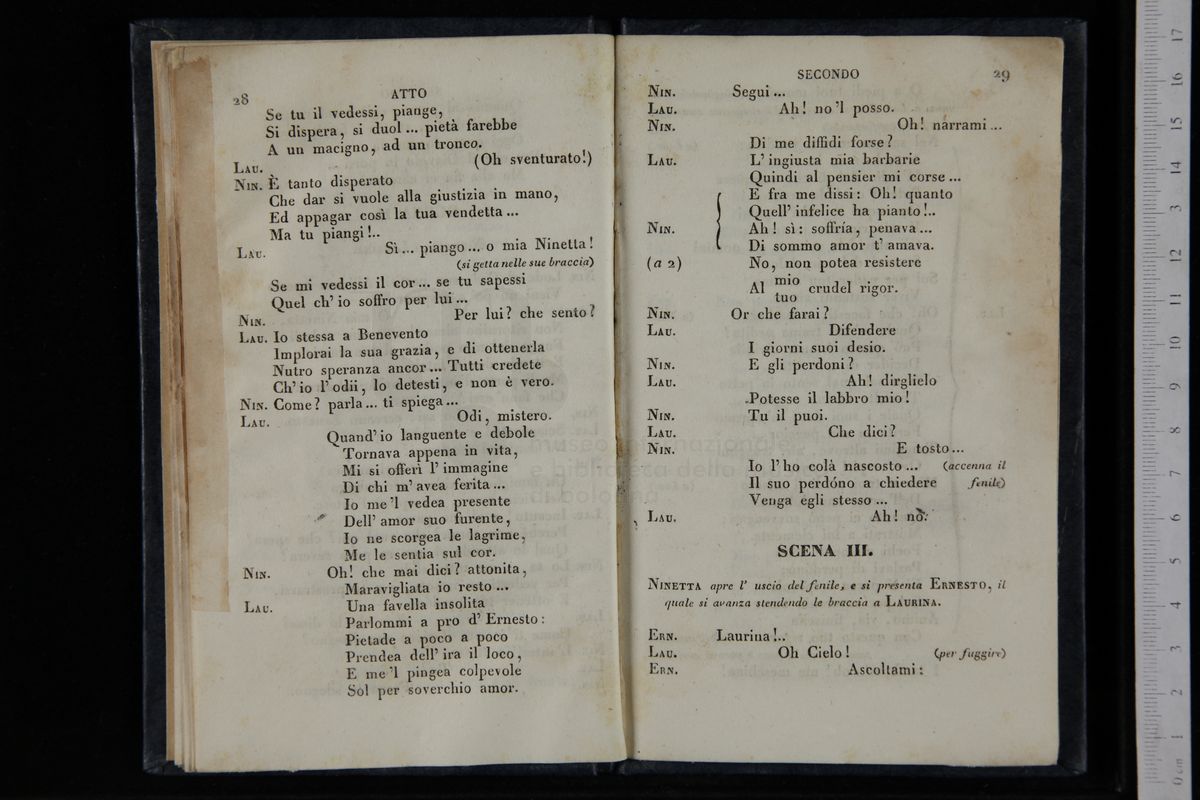 28
ATTO
Se tu il vedessi, piange,
Si dispera, si duol... pietà farebbe
A un macigno, ad un tronco.
LAU. (Oh sventurato!)
NIN. È tanto disperato
Che dar si vuole alla giustizia in mano,
Ed appagar così la tua vendetta...
Ma tu piangi!..
LAU. Sì... piango... o mia Ninetta!
(si getta nelle sue braccia)
Se mi vedessi il cor... se tu sapessi
Quel ch' io soffro per lui...
NIN. Per lui? che sento?
LAU. Io stessa a Benevento
Implorai la sua grazia, e di ottenerla
Nutro speranza ancor... Tutti credete
Ch' io l' odii, lo detesti, e non è vero.
NIN. Come? parla... ti spiega...
LAU. Odi, mistero.
Quand' io languente e debole
Tornava appena in vita,
Mi si offerì l' immagine
Di chi m' avea ferita...
Io me 'l vedea presente
Dell' amor suo furente,
Io ne scorgea le lagrime,
Me le sentia sul cor.
NIN. Oh! che mai dici? attonita,
Maravigliata io resto...
LAU. Una favella insolita
Parlommi a pro d' Ernesto:
Pietade a poco a poco
Prendea dell' ira il loco,
E me 'l pingea colpevole
Sol per soverchio amor.
SECONDO
29
NIN. Segui...
LAU. Ah! no 'l posso.
NIN. Oh! nárrami...
Di me diffidi forse?
LAU. L' ingiusta mia barbarie
Quindi al pensier mi corse...
E fra me dissi: Oh! quanto
Quell' infelice ha pianto!..
NIN. Ah! sì: soffría, penava...
Di sommo amor t' amava.
(a 2) No, non potea resistere
Al mio crudel rigor.
tuo
NIN. Or che farai?
LAU. Difendere
I giorni suoi desio.
NIN. E gli perdoni?
LAU. Ah! dirglielo
Potesse il labbro mio!
NIN. Tu il puoi.
LAU. Che dici?
NIN. E tosto...
Io l' ho colà nascosto... (accenna il
Il suo perdóno a chiedere fenile)
Venga egli stesso...
LAU. Ah! no.
SCENA III.
NINETTA apre l' uscio del fenile, e si presenta ERNESTO, il
quale si avanza stendendo le braccia a LAURINA.
ERN. Laurina!..
LAU. Oh Cielo! (per fuggire)
ERN. Ascoltami:
museo internazionale
e biblioteca della musica
di bologna
0 cm 1 2 3 4 5 6 7 8 9 10 11 12 13 14 15 16 17